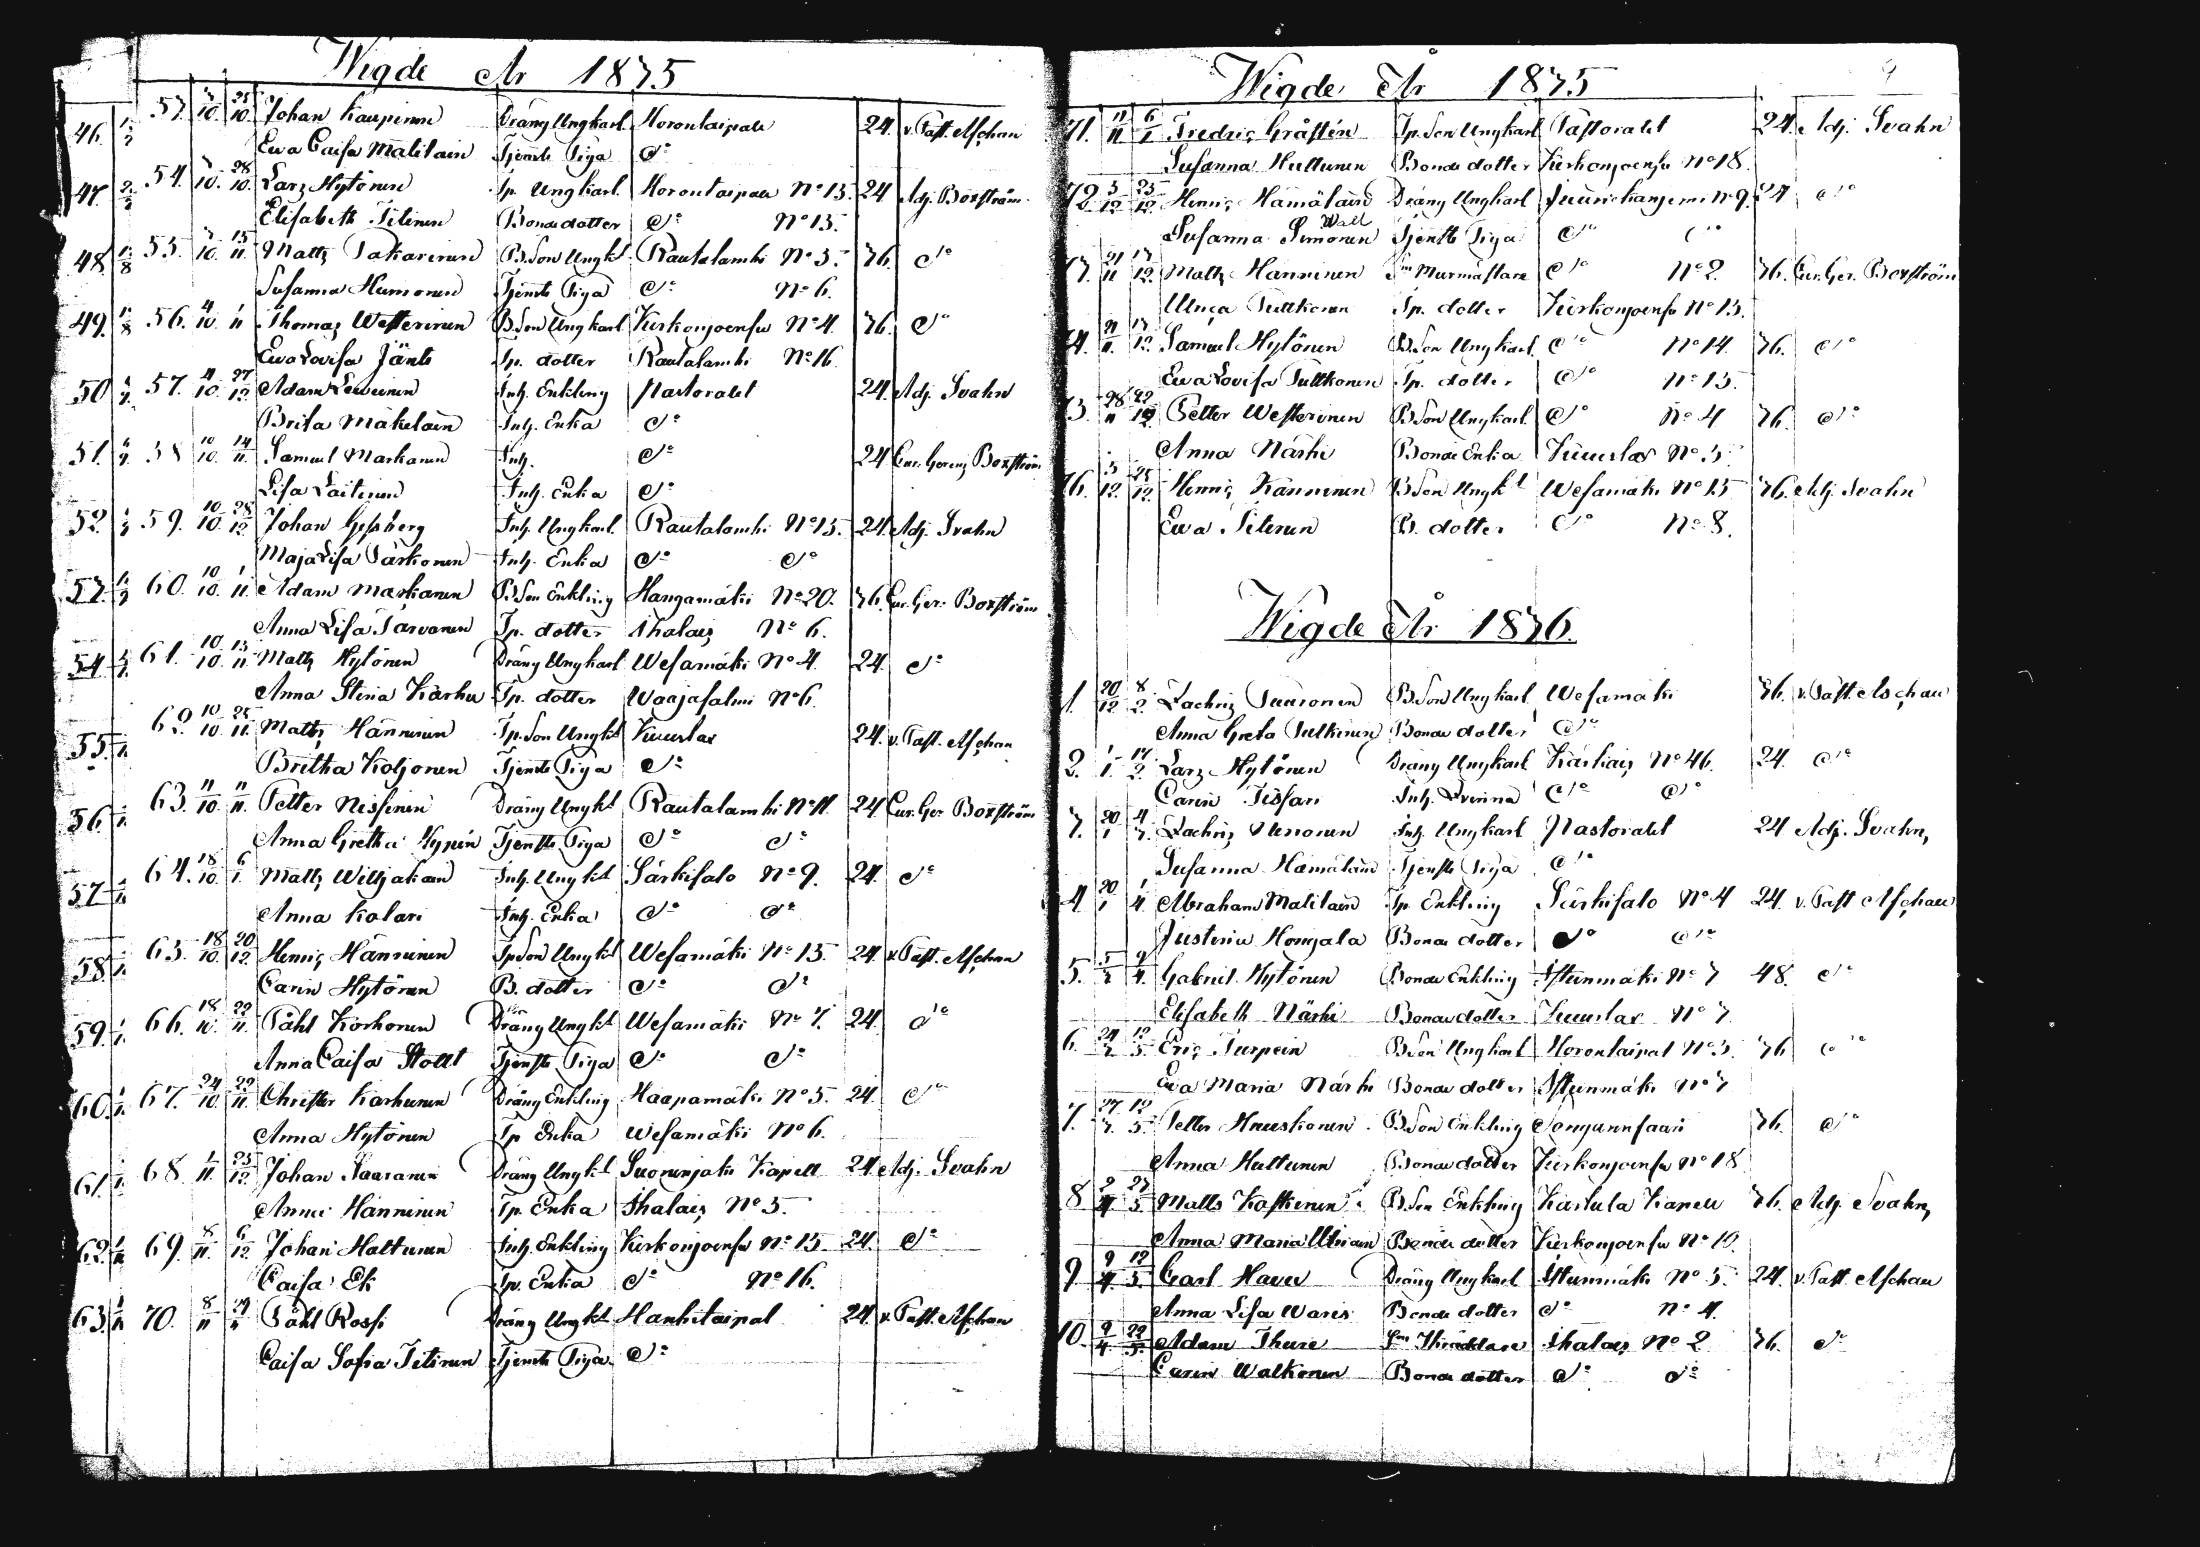 Wigde År 1835
46. 53. 3/10. 25/10. Johan Kaupinen Dräng Ungkarl Horontaipale 24. v. Past. Aschan
Ewa Caisa Matilain Tjenste Piga do
47. 54. 3/10. 28/10. Lars Hytönen Tp. Ungkarl. Horontaipale No 13. 24 Adj. Boxström
Elisabeth Titinen Bonde dotter do No 15.
48. 55. 3/10. 15/11. Matts Pakarinen B. Son Ungkl Rautalambi No 5. 76. do
Susanna Humonen Tjenste Piga do No 6.
49. 56. 4/10. 1/11 Thomas Westerinen B. Son Ungkarl Kirkonjoensu No 4. 76. do
Ewa Lovisa Jänti Tp. dotter Rautalambi No 16
50 57. 4/10. 27/12. Adam Leinonen Inh. Enkling Pastoratet 24. Adj. Svahn
Brita Mäkelain Inh. Enka do
51. 58 10/10. 14/11. Samuel Markanen Inh. do 24 Cur. Gerens Boxström
Lisa Laitinen Inh. Enka do
52. 59. 10/10. 28/12. Johan Inh. Ungkarl. Rautalambi No 15. 24. Adj. Svahn
Maja Lisa Parkonen Inh. Enka do do
53. 60. 10/10. 1/11. Adam Markanen B. Son Enkling Hangamäki No 20. 76. Cur. Ger. Boxström
Anna Lisa Tarvanen Tp. dotter Ihalais No 6.
54. 61. 10/10. 15/11. Matts Hytönen Dräng Ungkarl Wesamäki No 4. 24. do
Anna Stina Karhu Tp. dotter Waajasalmi No 6.
55. 62. 10/10. 25/11. Matts Hänninen Tp. Son Ungkl Kuuslax 24. v. Past. Aschan
Britha Koljonen Tjenste Piga do
56. 63. 11/10. 11/11. Petter Nissinen Dräng Ungkl Rautalambi No 11. 24. Cur. Ger. Boxström
Anna Gretha Hypein Tjenste Piga do do
57 64. 18/10. 6/1. Matts Wiljakain Inh. Ungkl Särkisalo No 9. 24. do
Anna Kolari Inh. Enka do do
58. 65. 18/10. 20/12. Henric Hänninen Tp. Son Ungkl Wesamäki No 15. 24. v. Past. Aschan
Carin Hytönen B. dotter do do
59. 66. 18/10. 22/11. Påhl Korhonen Dräng Ungkl Wesamäki No 7. 24. do
Anna Caisa Stollt Tjenste Piga do do
60. 67. 24/10. 22/11. Christer Karhunen Dräng Enkling Haapamäki No 5. 24. do
Anna Hytönen Tp Enka Wesamäki No 6.
61. 68. 1/11. 25/12. Johan Saaranen Dräng Ungkl Suonenjoki Kapell 24. Adj. Svahn
Anna Hänninen Tp. Enka Ihalais No 5.
62. 69. 8/11. 6/12. Johan Haltunen Inh. Enkling Kirkonjoensu No 15. 24. do
Caisa Ek Tp. Enka do No 16.
63. 70. 8/11 Påhl Rossi Dräng Ungkl Hankitaipal 24. v. Past. Aschan
Caisa Sofia Titinen Tjenste Piga do
Wigde År 1835 9
71. 11/11 6/1 Fredric Gråsten Tp. Son Ungkarl Pastoratet 24. Adj. Svahn
Susanna Huttunen Bonde dotter Kirkonjoensu No 18.
72. 3/12. 25/12. Henric Hämäläin Dräng Ungkarl No 9. 24 do
Susanna Simonen Wall Tjenste Piga do do
73. 21/11 13/12. Matts Hänninen Murmästare do No 2. 76. Cur. Ger. Boxström
Tuttkonen Tp. dotter Kirkonjoensu No 15.
74. 21/11. 13/12. Samuel Hytönen B. Son Ungkarl. do No 14. 76. do
Ewa Lovisa Tuttkonen Tp. dotter do No 15.
75. 28/11 29/12 Petter Westerinen B. Son Ungkarl do No 4 76. do
Anna Närhi Bonde Enka Kuuslax No 5.
76. 5/12. 25/12. Henric Känninen B. Son Ungkl Wesamäki No 15 76. Adj. Svahn
Ewa Titinen B. dotter do No 8.
Wigde År 1836.
1. 20/12 8/2. Zachris Tuuronen B. Son Ungkarl Wesamäki 76. v. Past. Aschan
Anna Greta Pulkinen Bonde dotter do
2. 1/1. 14/2. Lars Hytönen Dräng Ungkarl Kärkäis No 46. 24. do
Carin Tissari Inh. Qvinna do do
3. 20/1 4/3. Zachris Inh. Ungkarl Pastoratet 24 Adj. Svahn,
Susanna Hämäläin Tjenste Piga do
4. 20/1 1/4. Abraham Matilain Tp. Enkling Särkisalo No 4 24. v. Past Aschan
Justina Hongala Bonde dotter do do
5. 5/3 9/4. Gabriel Hytönen Bonde Enkling Istunmäki No 7 48. do
Elisabeth Närhi Bonde dotter Kuuslax No 7
6. 24/3 12/5. Eric Turpein B. Son Ungkarl Horontaipal No 3. 76 do
Ewa Maria Närhi Bonde dotter Istunmäki No 7
7. 27/3. 12/5. Petter Huuskonen B. Son Enkling Konginnsaari 76. do
Anna Huttunen Bonde dotter Kirkonjoensu No 18
8 2/4 27/5 Matts Koskinen B. Son Enkling Karstula Kapell 76. Adj. Svahn,
Anna Maria Utriain Bonde dotter Kirkonjoensu No 10.
9. 9/4. 12/5. Carl Haver Dräng Ungkarl Istunmäki No 5. 24. v. Past. Aschan
Anna Lisa Waris Bonde dotter do No 4.
10. 9/4 22/5. Adam Thure Skräddare Ihalais No 2 76. do
Carin Walkonen Bonde dotter do do